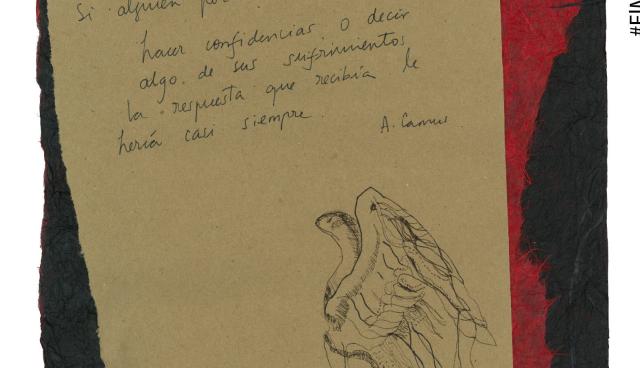 Si alguien
hacer confidencias o decir
algo de sus sufrimientos
la respuesta que recibía le
hería casi siempre
A. Camus